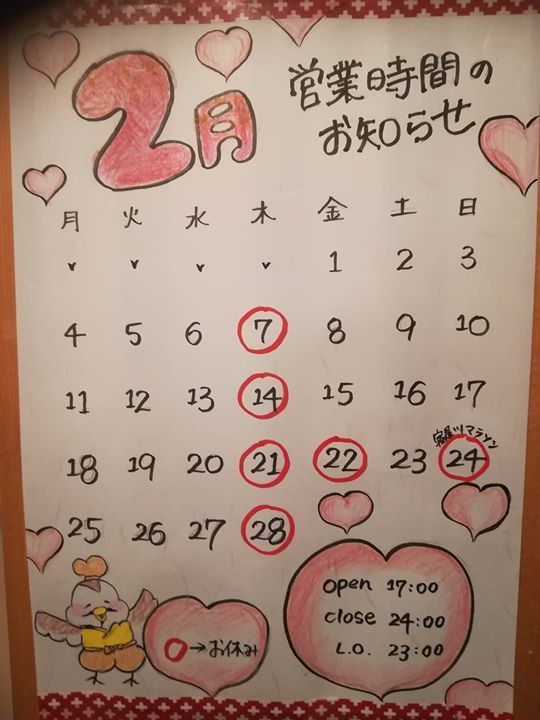 2月
営業時間の
お知らせ
月 火 水 木 金 土 日
1 2 3
4 5 6 7 8 9 10
11 12 13 14 15 16 17
寝屋川マラソン
18 19 20 21 22 23 24
25 26 27 28
open 17:00
close 24:00
L.O. 23:00
○→お休み